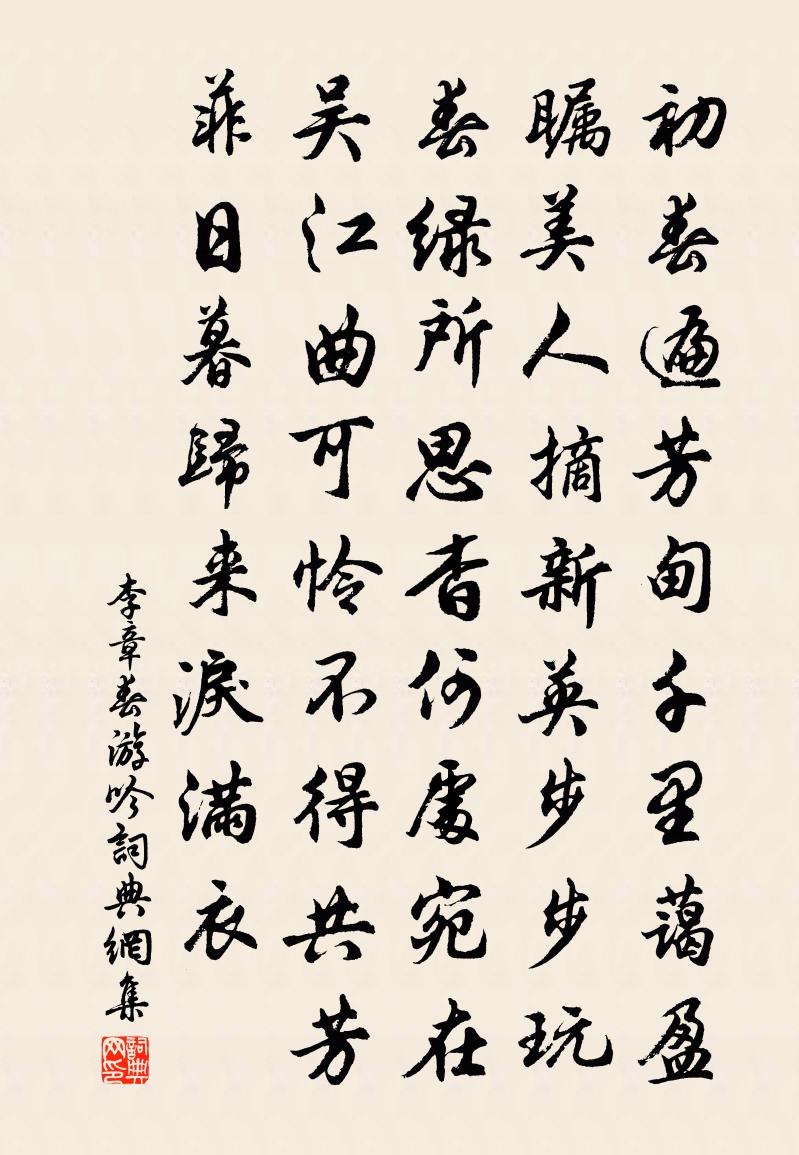 初春遍芳甸千里藹盈
矚美人摘新英步步玩
春绿所思杳何處宛在
吴江曲可怜不得共芳
菲日暮歸来淚滿衣
李章春游吟詞典網集
詞典网印